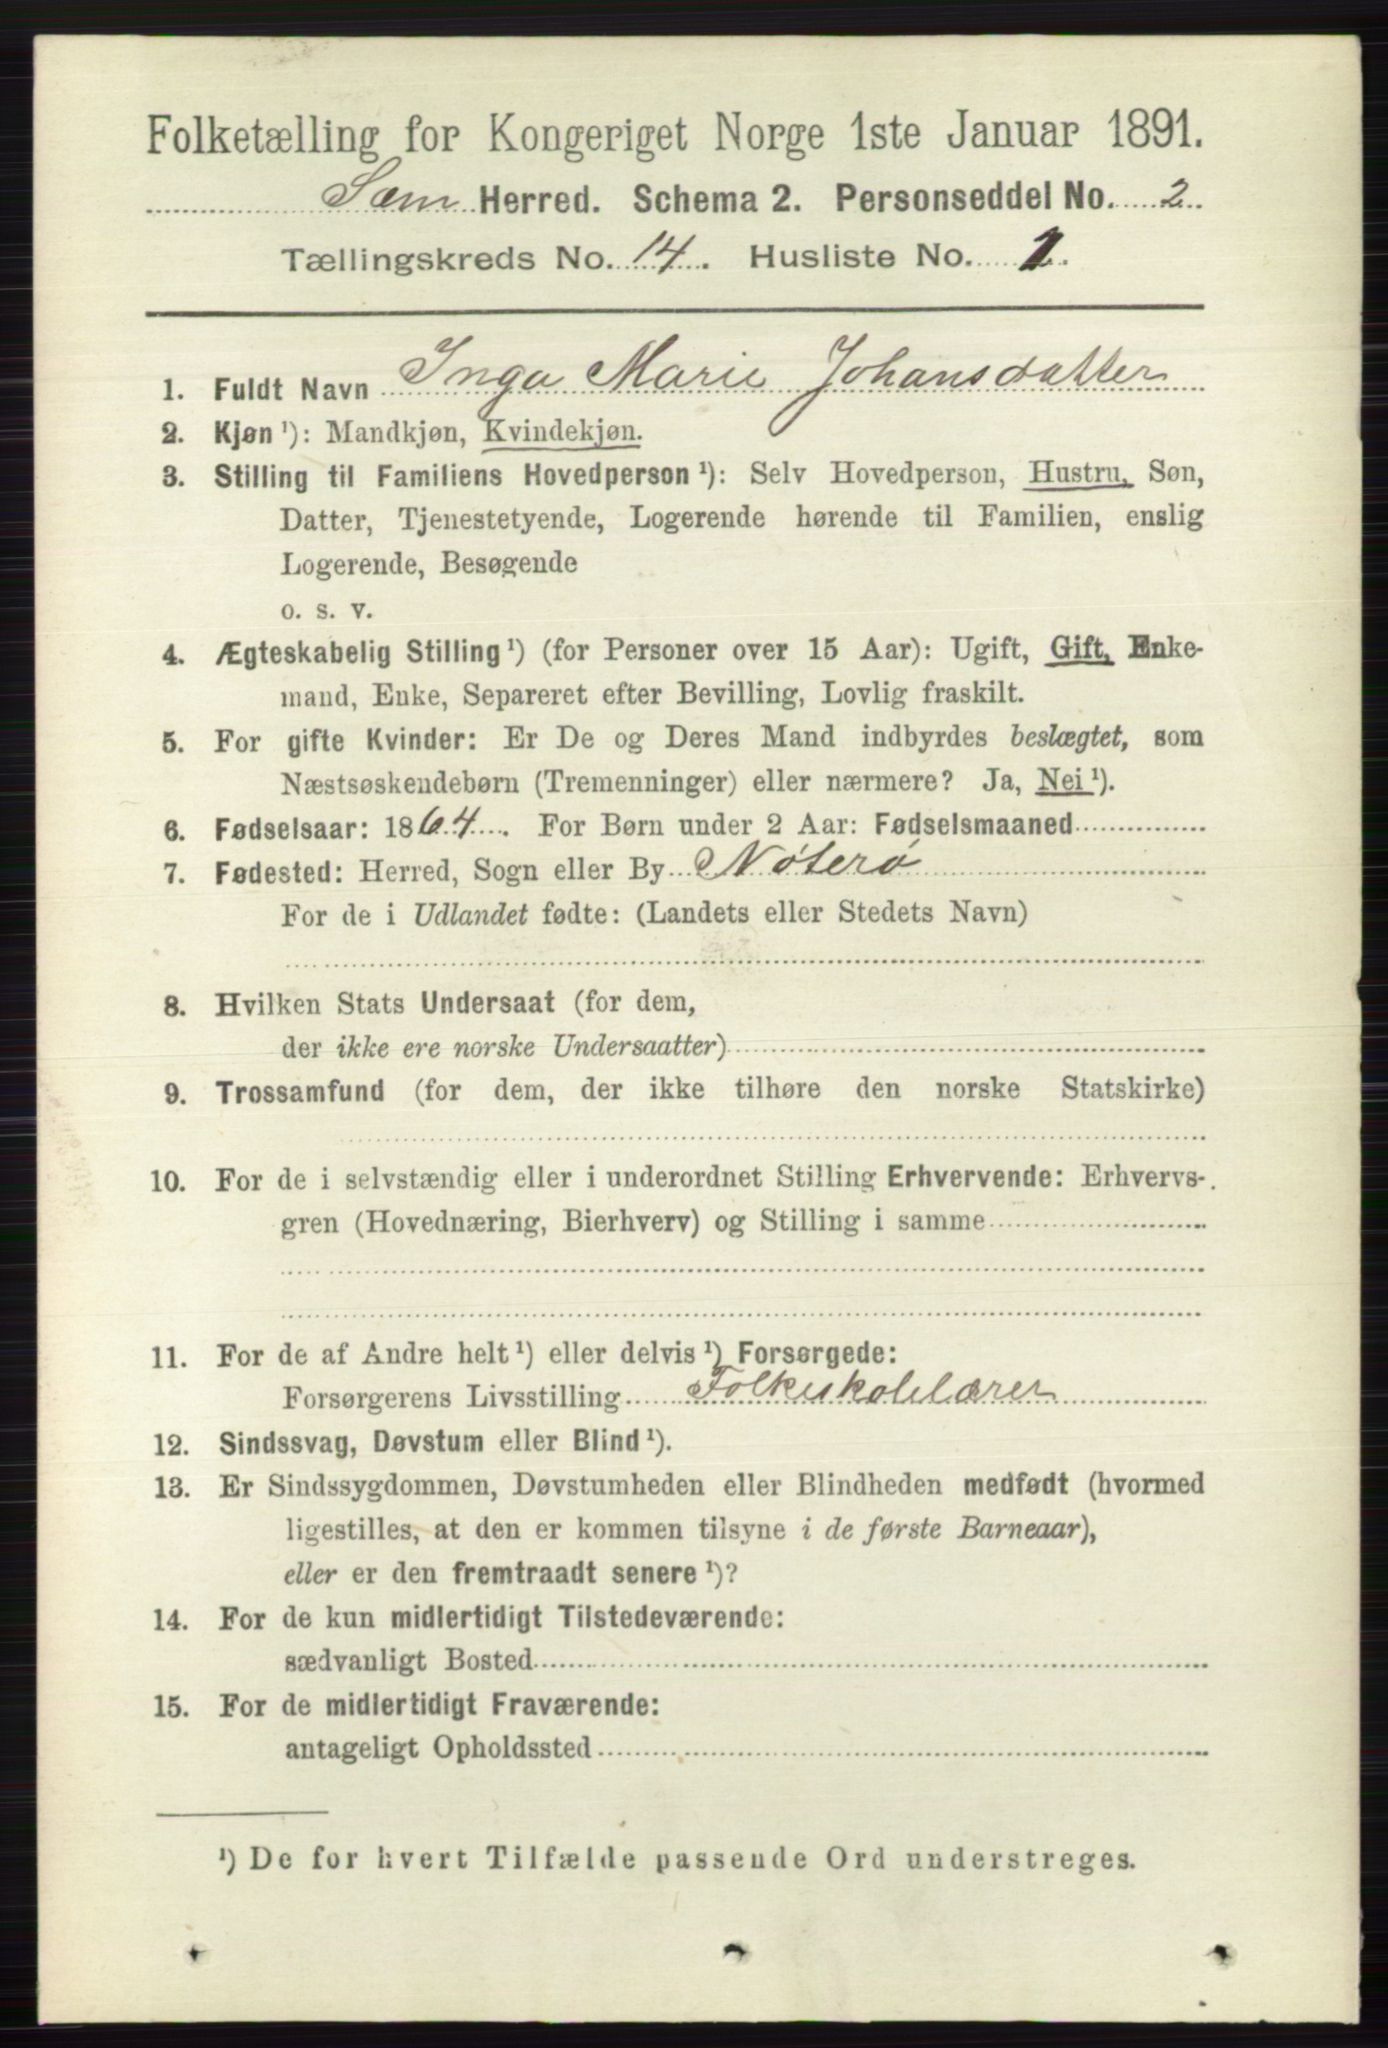 Folketælling for Kongeriget Norge 1ste Januar 1891.
Sem Herred. Schema 2. Personseddel No. 2
Tællingskreds No. 14. Husliste No. 1.
1. Fuldt Navn Inga Marie Johansdatter
2. Kjøn ¹): Mandkjøn, Kvindekjøn.
3. Stilling til Familiens Hovedperson ¹): Selv Hovedperson, Hustru, Søn,
Datter, Tjenestetyende, Logerende hørende til Familien, enslig
Logerende, Besøgende
o. s. v.
4. Ægteskabelig Stilling ¹) (for Personer over 15 Aar): Ugift, Gift, Enke-
mand, Enke, Separeret efter Bevilling, Lovlig fraskilt.
5. For gifte Kvinder: Er De og Deres Mand indbyrdes beslægtet, som
Næstsøskendebørn (Tremenninger) eller nærmere? Ja, Nei ¹).
6. Fødselsaar: 1864. For Børn under 2 Aar: Fødselsmaaned
7. Fødested: Herred, Sogn eller By Nøterø
For de i Udlandet fødte: (Landets eller Stedets Navn)
8. Hvilken Stats Undersaat (for dem,
der ikke ere norske Undersaatter)
9. Trossamfund (for dem, der ikke tilhøre den norske Statskirke)
10. For de i selvstændig eller i underordnet Stilling Erhvervende: Erhvervs-
gren (Hovednæring, Bierhverv) og Stilling i samme
11. For de af Andre helt ¹) eller delvis ¹) Forsørgede:
Forsørgerens Livsstilling Folkeskolelærer
12. Sindssvag, Døvstum eller Blind ¹).
13. Er Sindssygdommen, Døvstumheden eller Blindheden medfødt (hvormed
ligestilles, at den er kommen tilsyne i de første Barneaar),
eller er den fremtraadt senere ¹)?
14. For de kun midlertidigt Tilstedeværende:
sædvanligt Bosted
15. For de midlertidigt Fraværende:
antageligt Opholdssted
¹) De for hvert Tilfælde passende Ord understreges.